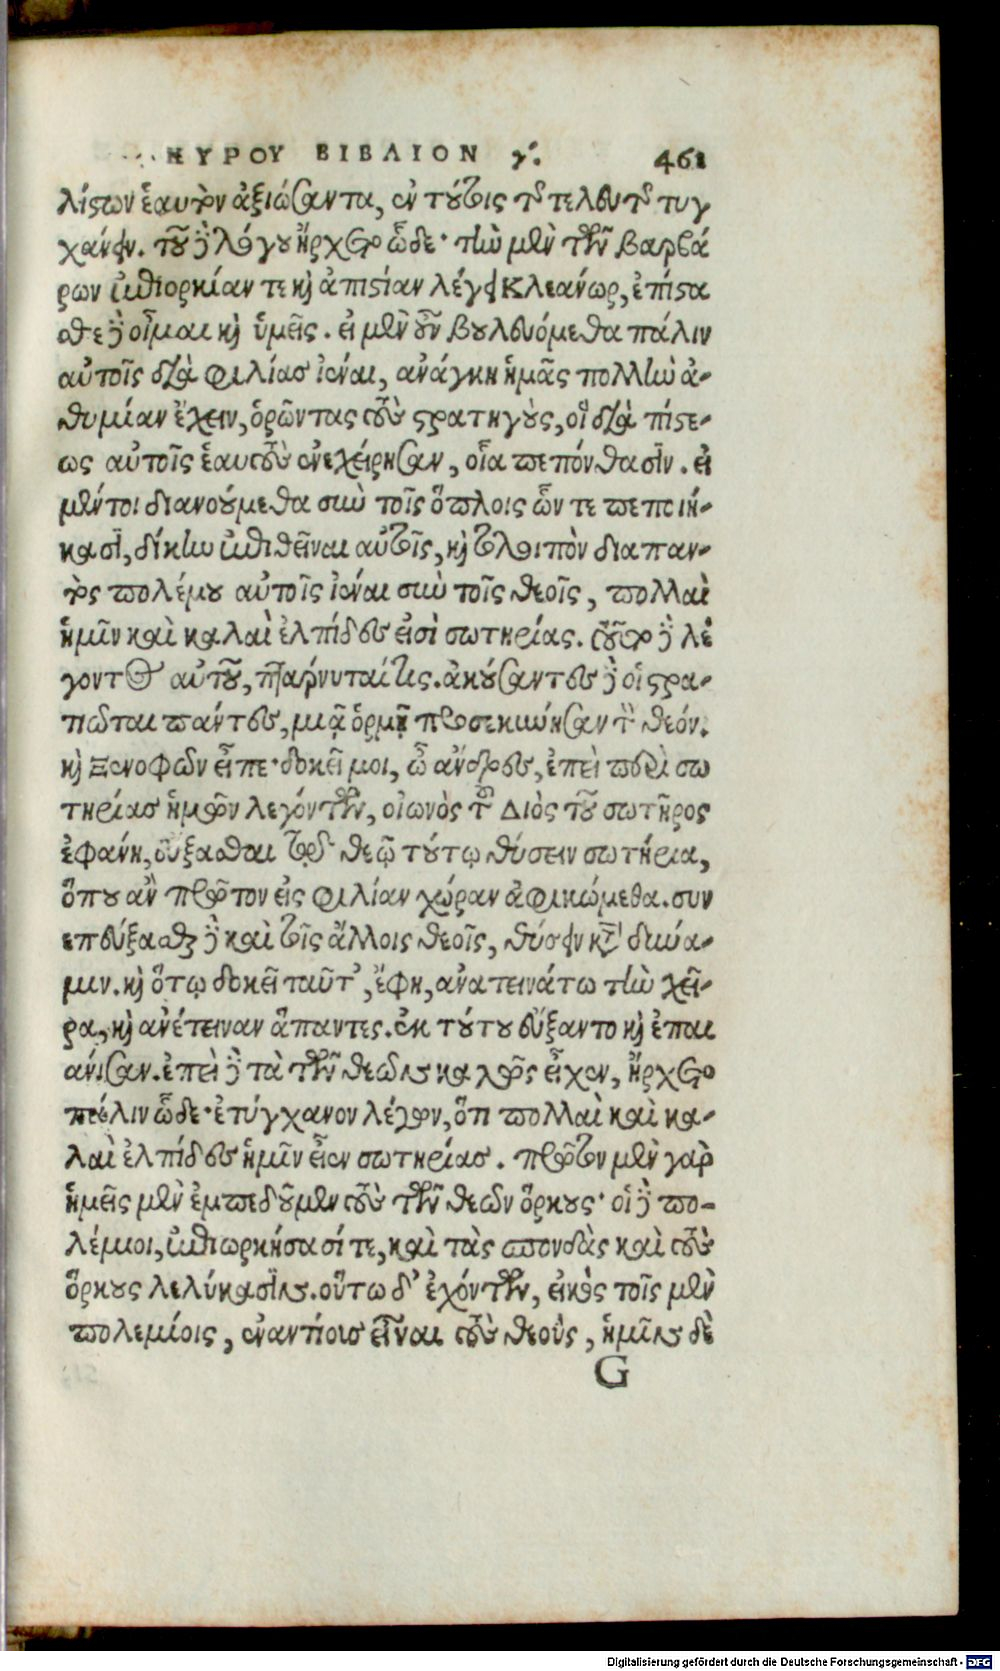 ΚΥΡΟΥ ΒΙΒΛΙΟΝ γ΄. 461
λίστων ἑαυτὸν ἀξιώσαντα, ἐν τούτοις τῆς τελευτῆς τυγ
χάνειν. τοῦ δὲ λόγου ἤρχετο ὧδε· τὴν μὲν τῶν βαρβά
ρων ἐπιορκίαν τε καὶ ἀπιστίαν λέγει Κλεάνωρ, ἐπίστα
σθε δὲ οἶμαι καὶ ὑμεῖς. εἰ μὲν οὖν βουλευόμεθα πάλιν
αὐτοῖς διὰ φιλίας ἰέναι, ἀνάγκη ἡμᾶς πολλὴν ἀ-
θυμίαν ἔχειν, ὁρῶντας τοὺς στρατηγοὺς, οἳ διὰ πίστε-
ως αὐτοῖς ἑαυτοὺς ἐνεχείρησαν, οἷα πεπόνθασιν. εἰ
μέντοι διανούμεθα σὺν τοῖς ὅπλοις ὧν τε πεποιή-
κασι, δίκην ἐπιθεῖναι αὐτοῖς, καὶ τολοιπὸν διαπαν-
τὸς πολέμου αὐτοῖς ἰέναι σὺν τοῖς θεοῖς, πολλαὶ
ἡμῖν καὶ καλαὶ ἐλπίδες εἰσὶ σωτηρίας. τοῦτο δὲ λέ
γοντος αὐτοῦ, πτάρνυταί τις. ἀκούσαντες δὲ οἱ στρα-
τιῶται πάντες, μιᾷ ὁρμῇ προσεκύνησαν τὸν θεόν.
καὶ Ξενοφῶν εἶπε· δοκεῖ μοι, ὦ ἄνδρες, ἐπεὶ περὶ σω
τηρίας ἡμῶν λεγόντων, οἰωνὸς τοῦ Διὸς τοῦ σωτῆρος
ἐφάνη, εὔξασθαι τῷ θεῷ τούτῳ θύσειν σωτήρια,
ὅπου ἂν πρῶτον εἰς φιλίαν χώραν ἀφικώμεθα. συν
επεύξασθαι δὲ καὶ τοῖς ἄλλοις θεοῖς, θύσειν κατὰ δύνα-
μιν. καὶ ὅτῳ δοκεῖ ταῦτ', ἔφη, ἀνατεινάτω τὴν χεῖ-
ρα, καὶ ἀνέτειναν ἅπαντες. ἐκ τούτου εὔξαντο καὶ ἐπαι
άνισαν. ἐπεὶ δὲ τὰ τῶν θεῶν καλῶς εἶχεν, ἤρχετο
πάλιν ὧδε· ἐτύγχανον λέγων, ὅτι πολλαὶ καὶ κα-
λαὶ ἐλπίδες ἡμῖν εἶεν σωτηρίας. πρῶτον μὲν γὰρ
ἡμεῖς μὲν ἐμπεδοῦμεν τοὺς τῶν θεῶν ὅρκους· οἱ δὲ πο-
λέμιοι, ἐπιωρκήσασί τε, καὶ τὰς σπονδὰς καὶ τοὺς
ὅρκους λελύκασιν. οὕτω δ' ἐχόντων, εἰκὸς τοῖς μὲν
πολεμίοις, ἐναντίους εἶναι τοὺς θεοὺς, ἡμῖν δὲ
G
Digitalisierung gefördert durch die Deutsche Forschungsgemeinschaft - DFG